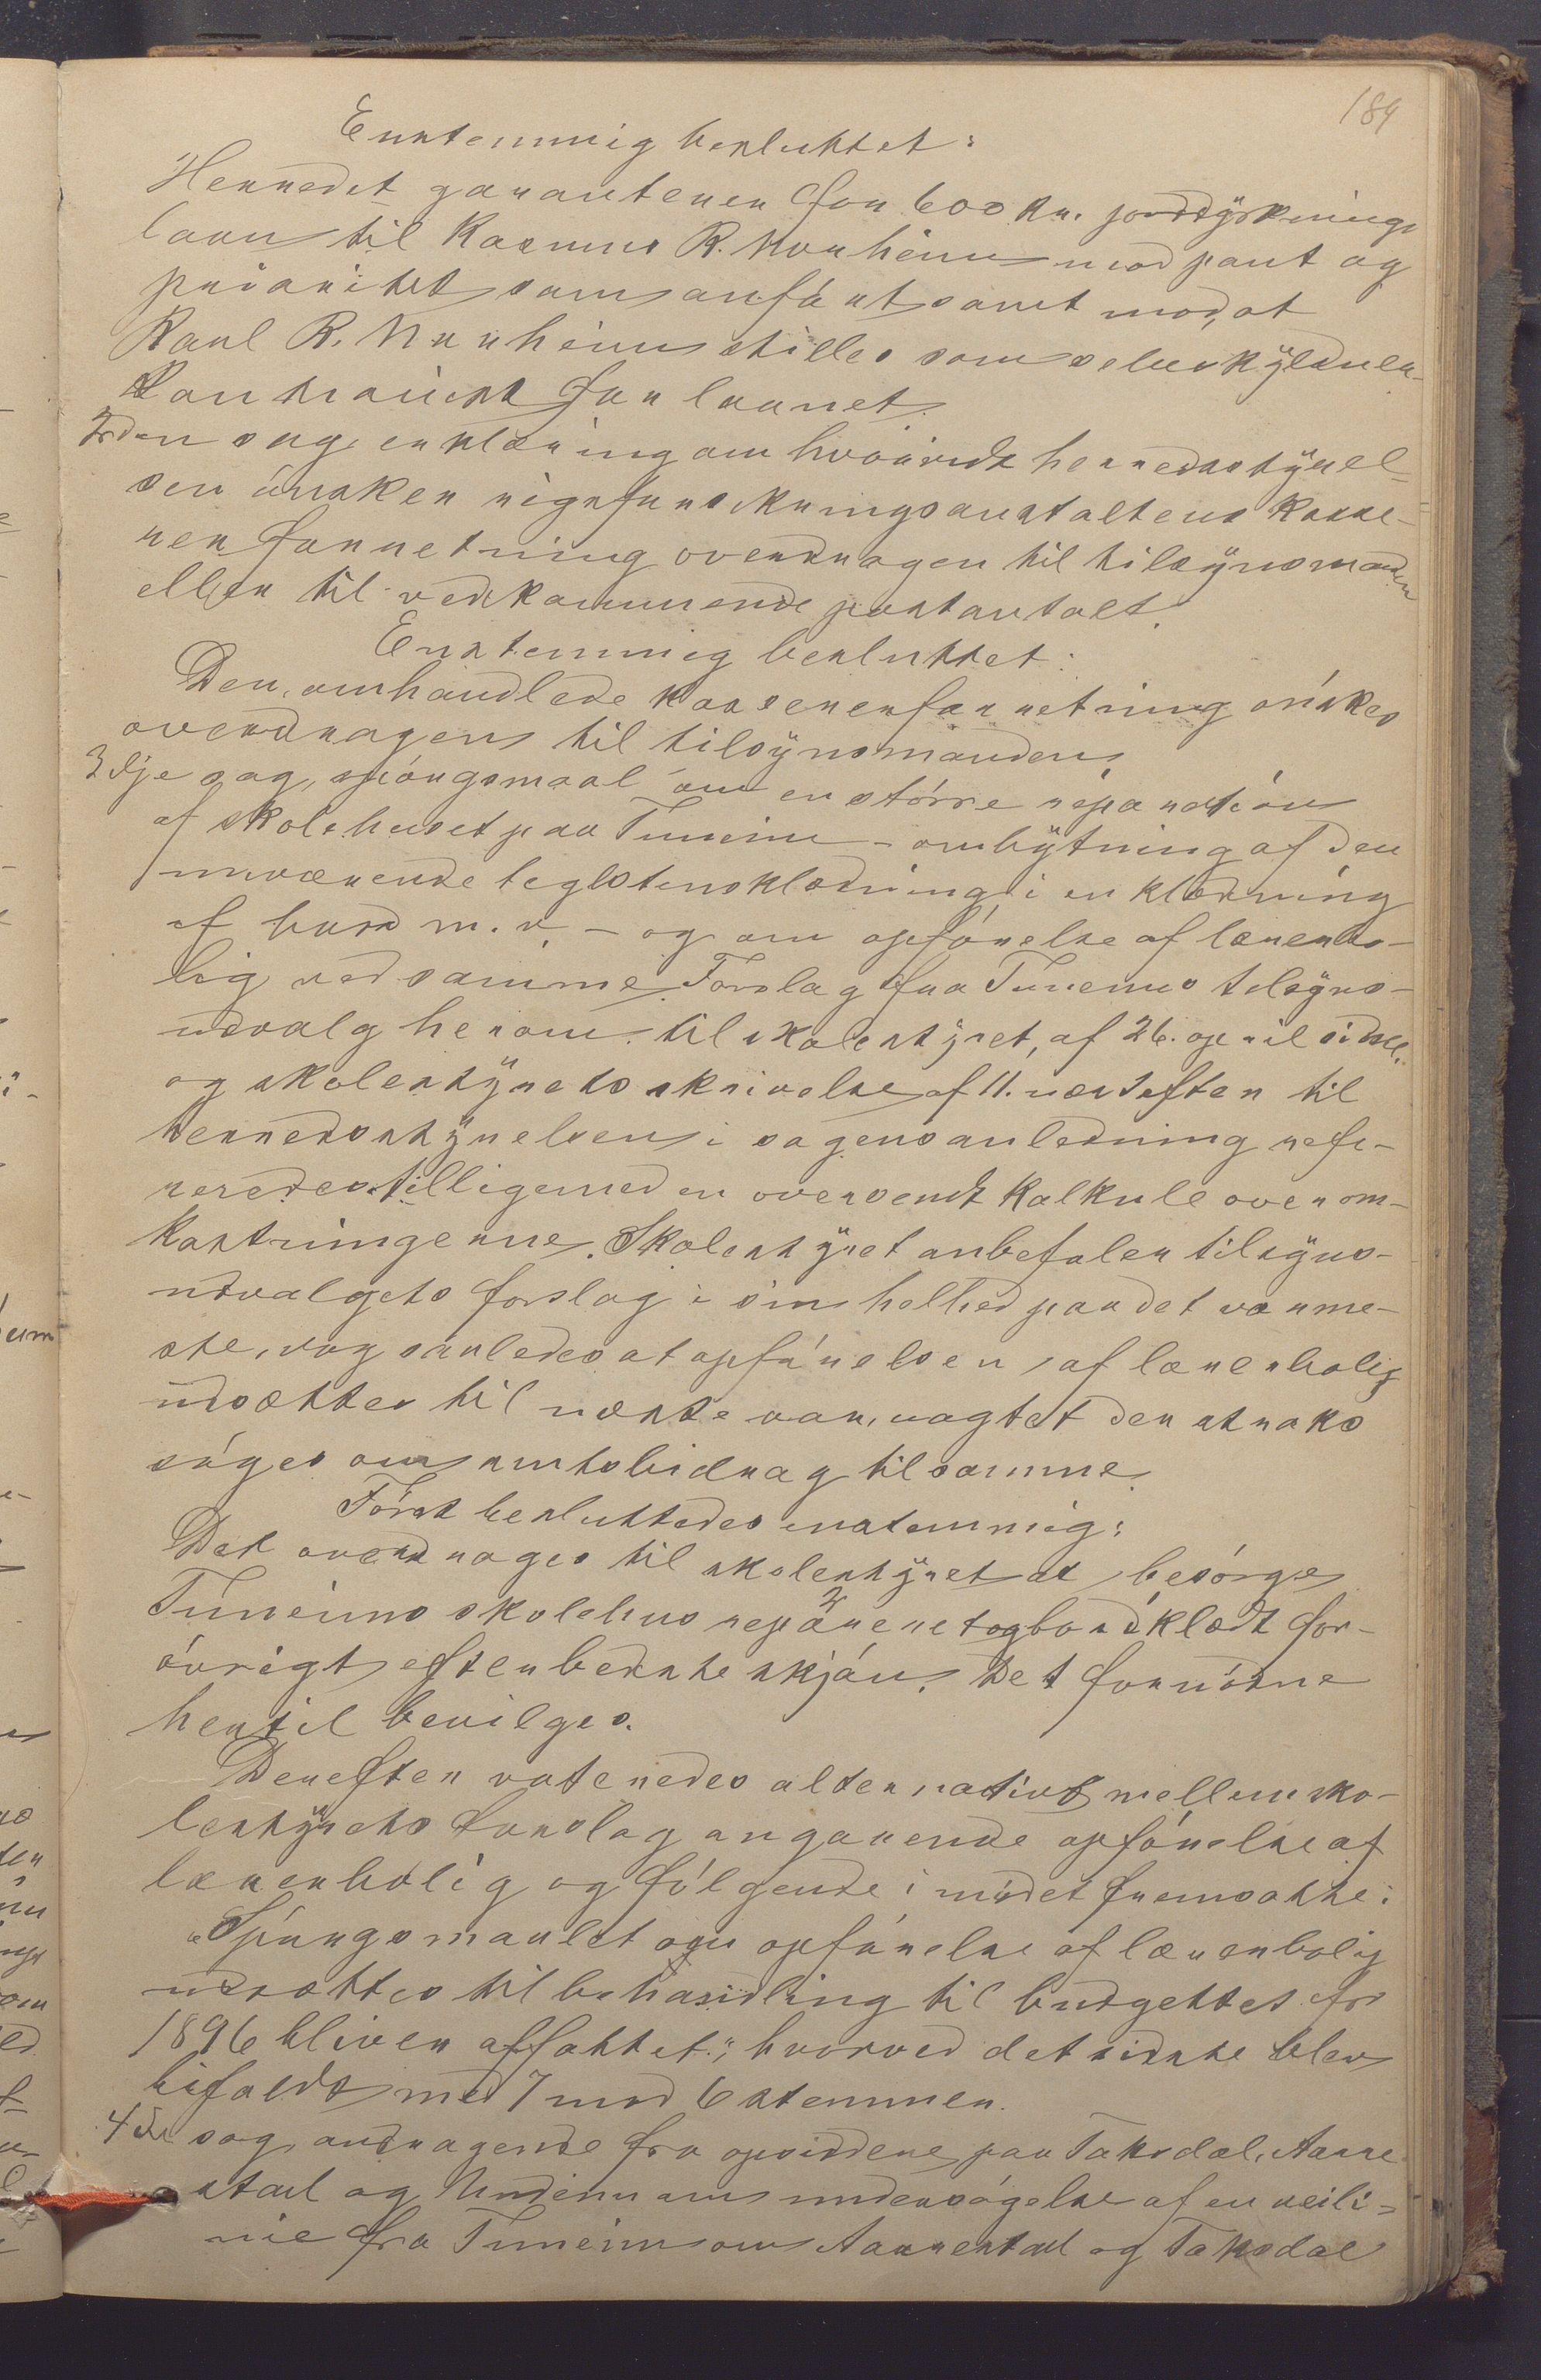 189
Enstemmig besluttet:
Herredet garanterer for 600 kr. jorddÿrknings
laan til Rasmus R. Norheim mod pant og
prioritet som anført samt mod, at
Karl R. Norheim stilles som selvskÿldner-
kautionist for laanet.
2den sag, erklæring om hvorvidt herredsstÿrel-
sen ønsker rigsforsikringsanstaltens kasse-
rerforretning overdragen til tilsÿnsmanden
eller til vedkommende postanstalt.
Enstemmig besluttet:
Den omhandlede kassererforretning ønskes
overdragen til tilsÿnsmanden,
3dje sag, spørgsmaal om en større reparation
af skolehuset paa Tuneim - ombÿtning af den
nuværende teglstensklædning i en klædning
af bord m. v. - og om opførelse af lærerbo-
lig ved samme. Forslag fra Tuneims tilsÿns-
udvalg herom til skolestÿret, af 26. april sidstl.
og skolestÿrets skrivelse af 11. næstefter til
herredsstÿrelsen i sagens anledning refe-
reredes tilligemed en oversendt kalkule over om-
kostningerne. Skolestÿret anbefaler tilsÿns-
udvalgets forslag i sin helhed paa det varme-
ste, dog saaledes at opførelsen af lærerbolig
udsættes til næste aar, uagtet der straks
søges om amtsbidrag til samme.
Først besluttedes enstemmig:
Det overdrages til skolestÿret at besørge
Tuneims skolehus repareret og bordklædt for-
øvrigt efter bedste skjøn. Det fornødne
hertil bevilges.
Derefter voteredes alternativt mellem sko-
lestÿrets forslag angaaende opførelse af
lærerbolig og følgende i mødet fremsatte:
"Spørgsmaalet om opførelse af lærerbolig
udsættes til behandling til budgettet for
1896 bliver affattet"; hvorved det sidste blev
bifaldt med 7 mod 6 stemmer.
4de sag, andragende fra opsidderne paa Taksdal, Aarre-
stad og Undeim om undersøgelse af en veili-
nie fra Tuneim om Aarrestad og Taksdal